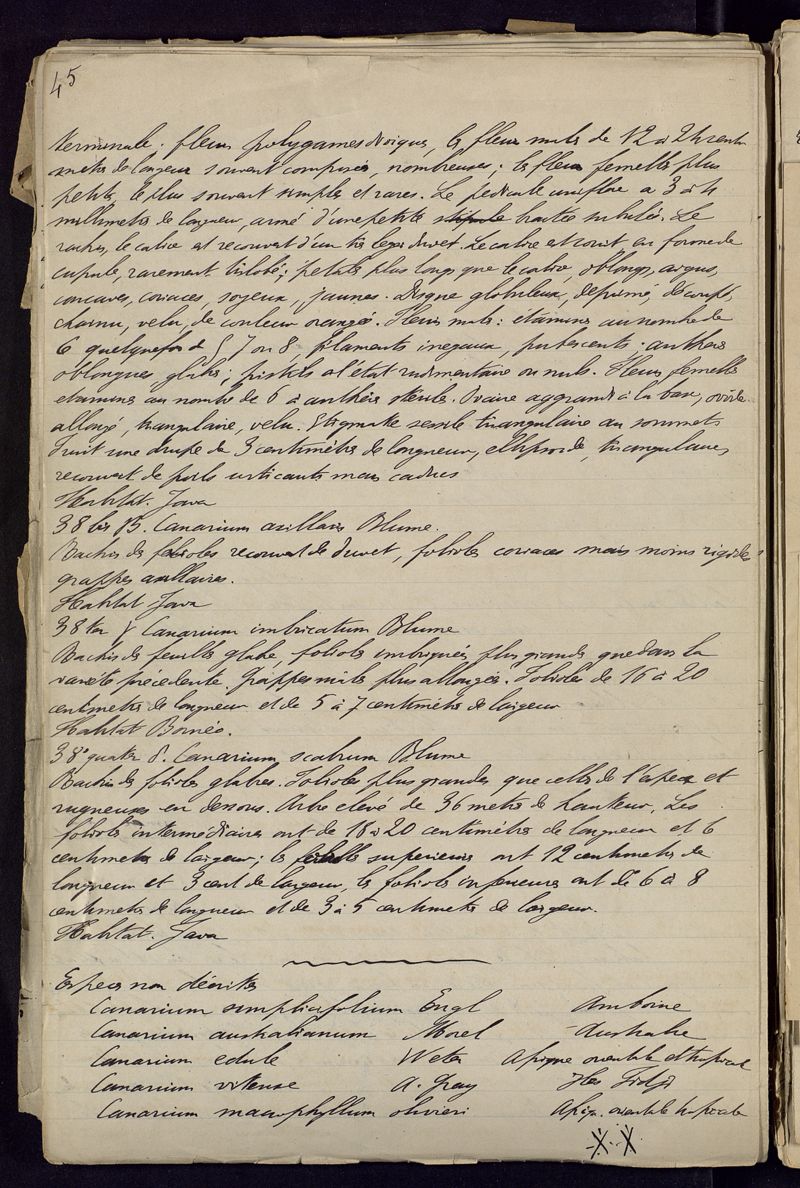 45
terminale : fleurs polygames dioiques, les fleurs males de 12 à 24 centi
metres de longueur souvent composées, nombreuses ; les fleurs femelles plus
petites le plus souvent simples et rares. Le pedicule uniflore a 3 à 4
millimetres de longueur, armé d'une petite stipule bractée subulée. Le
rachis, le calice est recouvert d'un tres leger duvet. Le calice est court en forme de
cupule, rarement trilobé ; petales plus longs que le calice, oblongs, aigus,
concaves, coriaces, soyeux, jaunes. Disque globuleux, deprimé, découpé,
charnu, velu, de couleur orangée. Fleurs males : étamines au nombre de
6 quelquefois 7 ou 8, filaments inegaux, pubescents : anthères
oblongues glabres ; pistils a l'état rudimentaire ou nuls. Fleurs femelles
etamines au nombre de 6 à anthères stériles. Ovaire aggrandi à la base, ovoide
allongé, triangulaire, velu. Stigmate sessile triangulaire au sommet
Fruit une drupe de 3 centimètres de longueur, ellipsoide, triangulaire,
recouvert de poils urticants mais caducs
Habitat. Java
38 bis β. Canarium axillare Blume.
Rachis des folioles recouvert de duvet, folioles coriaces mais moins rigides
grappes axillaires.
Habitat Java
38 ter γ Canarium imbricatum Blume
Rachis des feuilles glabre, folioles imbriquées plus grandes que dans la
varieté precedente. Grappes males plus allongées. Folioles de 16 à 20
centimetres de longueur et de 5 à 7 centimètres de largeur
Habitat Bornéo.
38 quater δ. Canarium scabrum Blume
Rachis des folioles glabres. Folioles plus grandes que celles de l'espece et
rugueuses en dessous. Arbre elevé de 36 metres de hauteur. Les
folioles intermédiaires ont de 18 à 20 centimètres de longueur et 6
centimetres de largeur ; les superieures ont 12 centimetres de
longueur et 3 cent de largeur, les folioles inferieures ont de 6 à 8
centimetres de longueur et de 3 à 5 centimetres de largeur.
Habitat. Java
Especes non décrites
Canarium simplicifolium Engl Amboine
Canarium australianum Morel Australie
Canarium edule Afrique orientale et tropicale
Canarium vitense A. Gray Iles Fidji
Canarium macrophyllum olivieri Afriq. orientale tropicale
X X